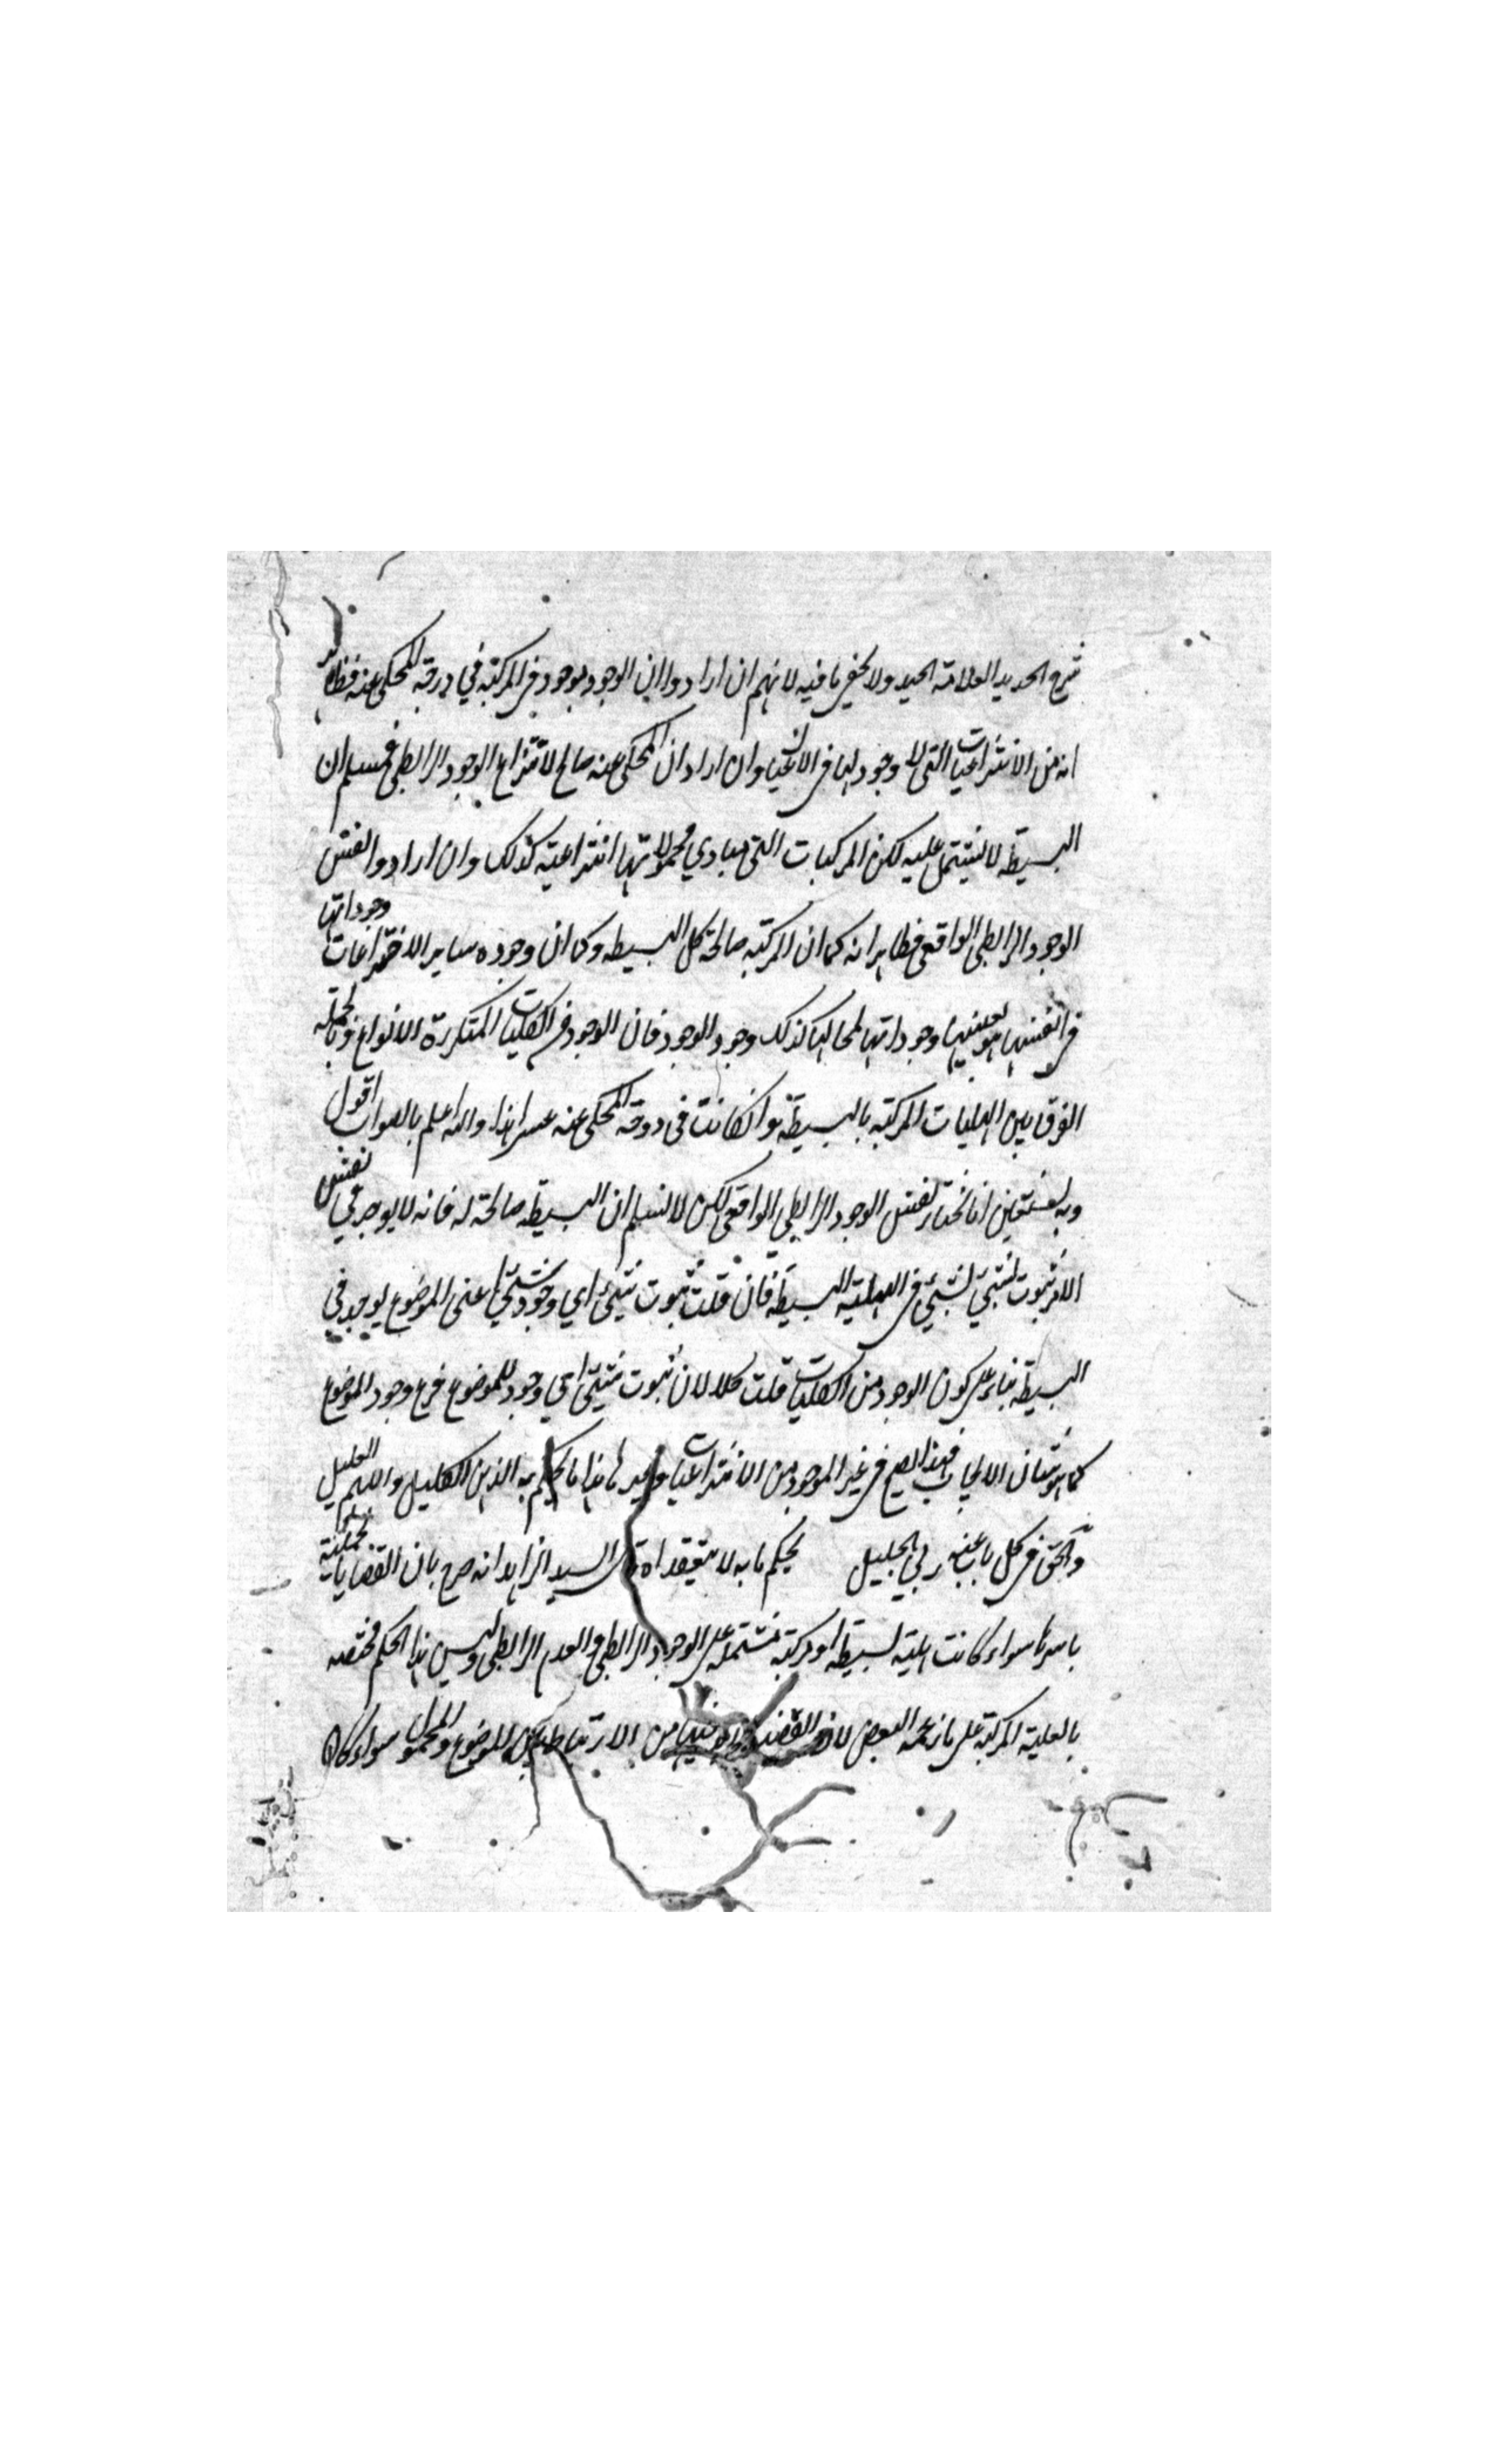 شرح الجديد العلامة الجيد ولا يخفى ما فيه لانهم ان ارادوا ان الوجود موجود فى المركبة في درجة المحكى عنه فظاهر
انه من الانتزاعيات التى لا وجود لها فى الاعيان وان اراد ان المحكى عنه صالح لانتزاع الوجود الرابطى فمسلم ان
البسيطة لا يشتمل عليه لكن المركبات التى مبادي محمولاتها انتزاعية كذلك وان ارادوا نفس
الوجود الرابطى الواقعى فظاهر انه كما ان المركبة صالحة كل البسيطه وكما ان وجوده ساير الاختراعات وجوداتها
فى انفسها هو بعينها وجوداتها لمحالها كذلك وجود الوجود فان الوجود فى الكليات المتكررة الانواع وبالجملة
الفرق بين الهليات المركبة بالبسيطة وانكانت فى درجة المحكى عنه عسر هذا والله اعلم بالصواب اقول
وبه نستعين انا نختار نفس الوجود الرابطى الواقعى لكن لا نسلم ان البسيطة صالحة له فانه لا يوجد في نفس
الامر ثبوت لشيئ لشيئ فى الهلية البسيطة فان قلت ثبوت شيئ اي وجود شيئ اعنى الموضوع يوجد في
البسيطة بناء على كون الوجود من الكليات قلت كلا لان ثبوت شيئ اى وجود للموضوع فرع وجود الموضوع
كما هو شان الايجاب فهذا يصح فى غير الموجود من الانتزاعيات وغيرها هذا ما يحكم به الذهن الكليل والفهم العليل
والحق فى كل باب عند ربي الجليل يحكم ما به لا يتيقد اه قال السيد الزاهد انه صرح بان القضايا الحملية
باسرها سواء كانت هلية بسيطة او مركبة مشتملة على الوجود الرابطى والعدم الرابطى وليس هذا الحكم مختصه
بالهلية المركبة على ما زعمه البعض لان القضية من الارتباط بين الموضوع والمحمول سواء كان